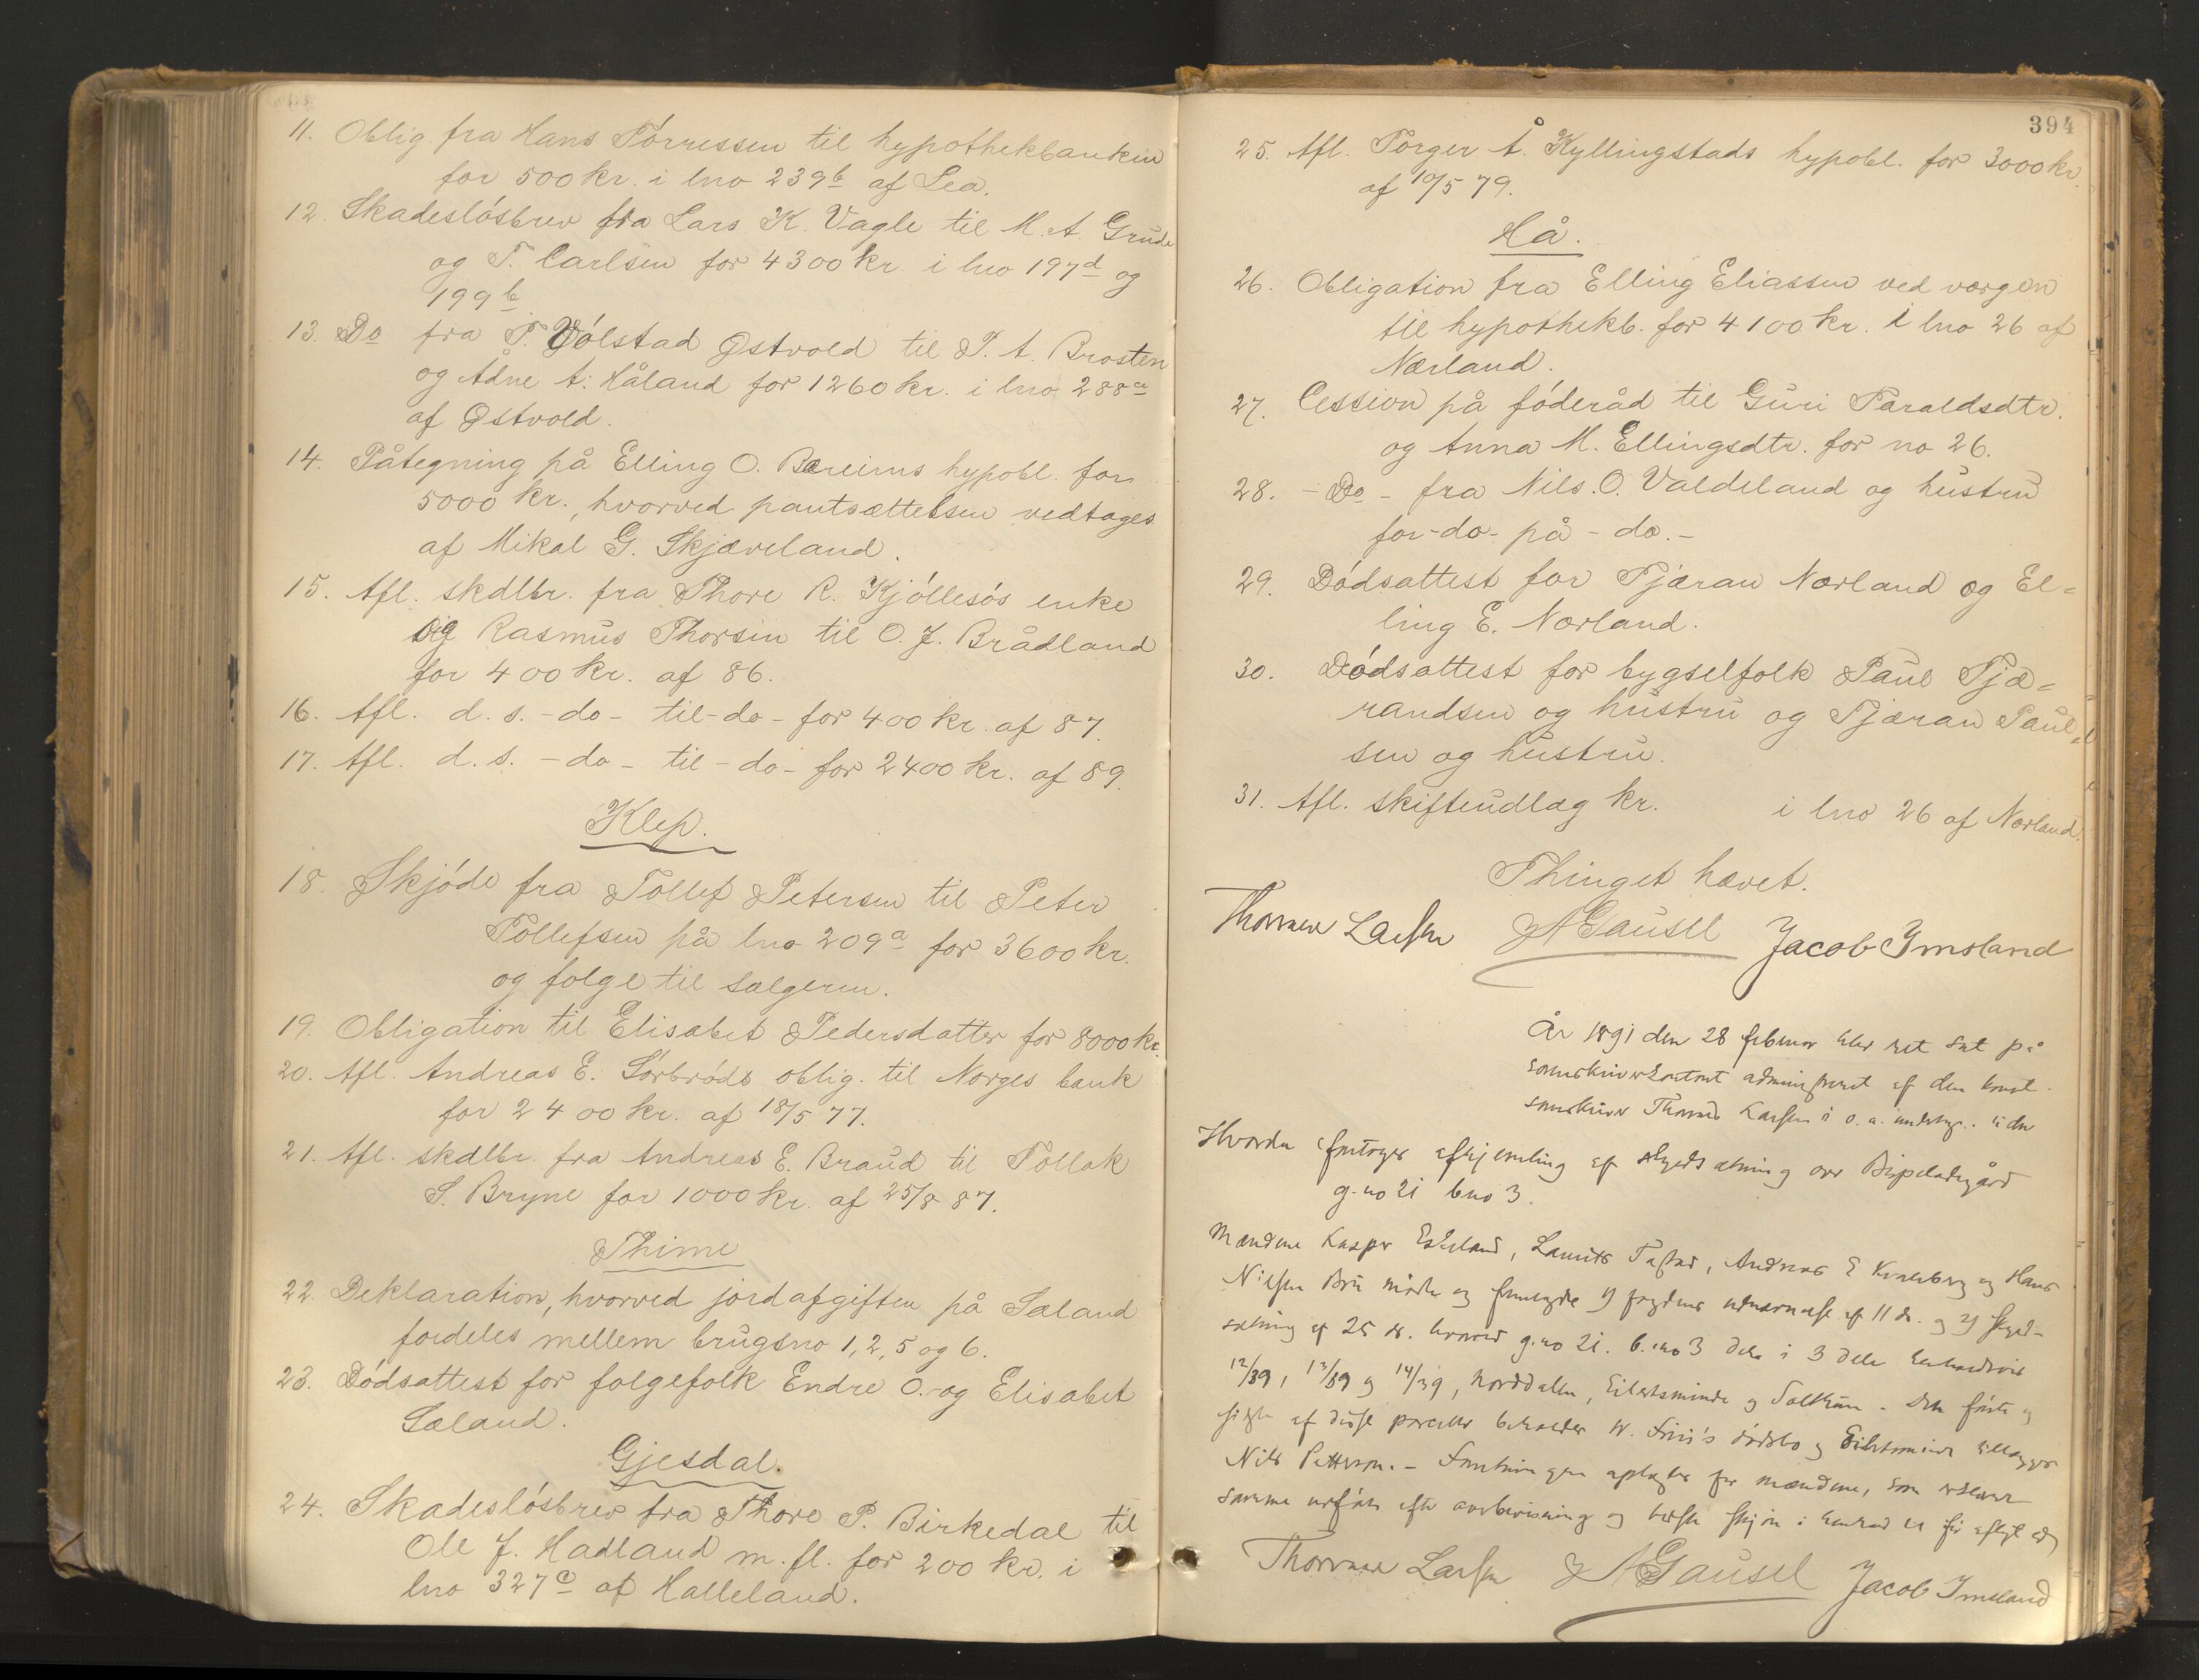 11. Oblig fra Hans Tórressen til hypothekbanken
for 500 kr. i lno 239b af Lea.
12. Skadeslósbrev fra Lars K. Vagle til M. A. Grude
og T. Carlsen for 4300 kr i lno 197d og
199b
13. Do fra T. Vólstad Østvold til P. A. Brosten
og Ådne A. Håland for 1260 kr. i lno 288a
af Østvold.
14. Påtegning på Elling O. Bæreims hypobl. for
5000 kr., hvorved pantsættelsen vedtages
af Mikal G. Skjæveland.
15. Afl. skdlbr. fra Thore R. Kjóllesós enke
og Rasmus Thorsen til O. J. Brådland
for 400 kr. af 86.
16. Afl. d. s. - do - til - do - for 400 kr. af 87.
17. Afl. d. s. - do - til - do - for 2400 kr. af 89.
Klep.
18. Skjóde fra Tollef Petersen til Peter
Tollefsen på lno 209a for 3600 kr.
og folge til sælgeren.
19. Obligation til Elisabet Pedersdatter for 8000 kr.
20. Afl. Andreas E. Sórbróds oblig. til Norges bank
for 2400 kr. af 18/5 77.
21. Afl. skdlbr. fra Andreas E. Braud til Tollak
S. Bryne for 1000 kr. af 25/8 87.
Thime
22. Deklaration, hvorved jordafgiften på Sæland
fordeles mellem brugsno 1, 2, 5 og 6.
23. Dódsattest for folgefolk Endre O. og Elisabet
Sæland.
Gjesdal.
24. Skadeslósbrev fra Thore P. Birkedal til
Ole J. Hadland m. fl. for 200 kr. i
lno 327c af Halleland.
394
25. Afl. Torger Å. Kyllingstads hypobl. for 3000 kr.
af 10/5 79.
Hå.
26. Obligation fra Elling Eliassen ved værgen
til hypothekb. for 4100 kr. i lno 26 af
Nærland.
27. Cession på fóderåd til Guri Taraldsdtr.
og Anna M. Ellingsdtr. for no 26.
28. - Do - fra Nils. O. Valdeland og hustru
for - do - på - do. -
29. Dódsattest for Tjæran Nærland og El=
ling E. Nærland.
30. Dódsattest for bygselfolk Paul Tjæ=
randsen og hustru og Tjæran Paul=
sen og hustru.
31. Afl. skifteudlæg kr. i lno 26 af Nærland.
Thinget hævet.
Thorvald Larsen A Gausel Jacob Imsland
År 1891 den 28 februar blev ret sat på
sorenskriverkontoret administreret af den konst.
sorenskriver Thorvald Larsen i o. a. undertegn. vidner
Hvorda foretoges afhjemling af skyldsætning over Bispeladegård
g. no 21 bno 3.
Mændene Kasper Eskeland, Lauritz Tastad, Andreas E Kvaleberg og Hans
Nilsen Bru mødte og fremlagde 1) fogdens udnævnelse af 11 ds. og 2) skyld-
sætning af 25 ds. hvorved g. no 21. b. no 3 deles i 3 dele henholdsvis
12/39, 13/39 og 14/39, Norddalen, Eilertsminde og Solthun. Den første og
sidste af disse parceller beholder W. Friis's dødsbo og Eilertsminde tillægges
Nils Petterson. - Forretningen oplæstes for mændene, som
samme udført efter overbevisning og bedste skjøn i henhold til før aflagt ed
Thorvald Larsen A Gausel Jacob Imsland